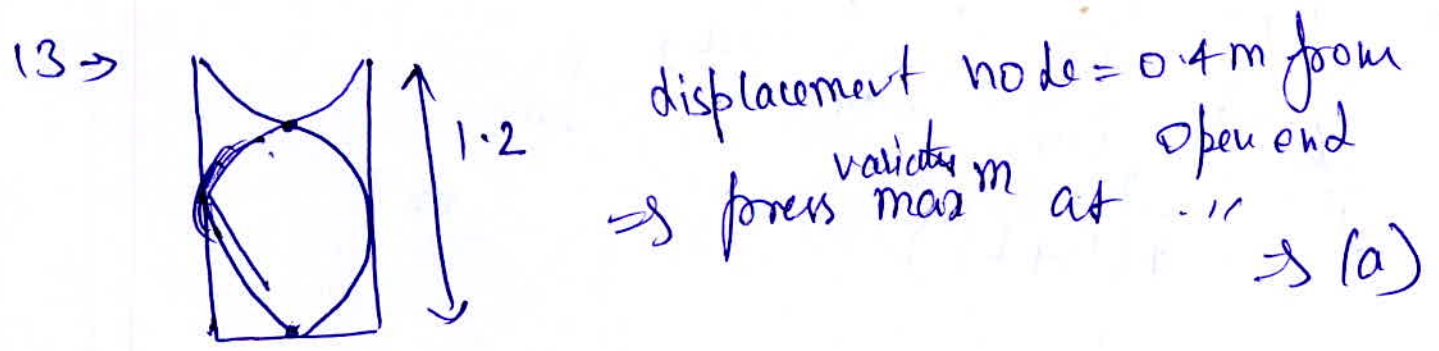 13 →
1.2
displacement node = 0.4 m from
open end
⇒ press variation maxᵐ at .〃
⇒ (a)